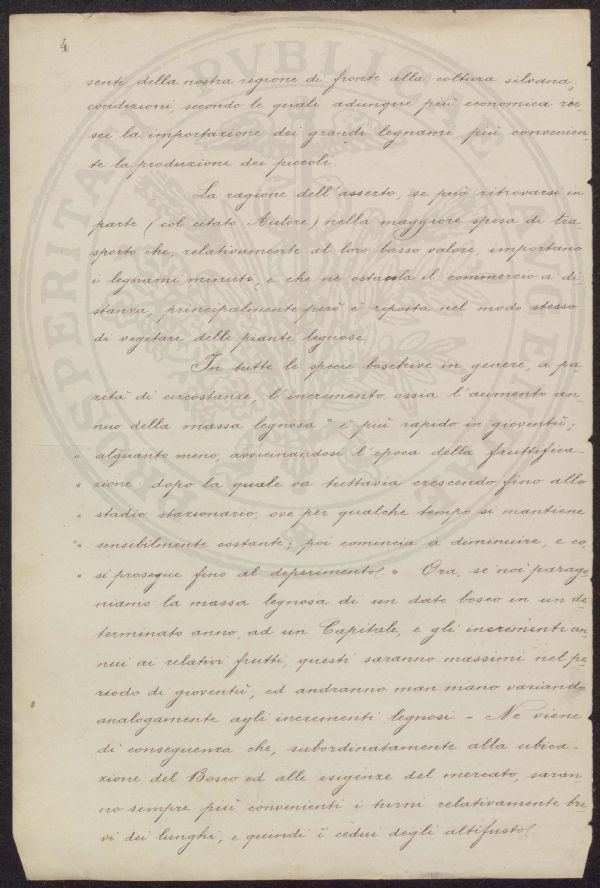 4
senti della nostra regione di fronte alla coltura silvana,
condizioni, secondo le quali adunque più economica rie-
sce la importazione dei grandi legnami più convenien-
te la produzione dei piccoli.
La ragione dell'asserto, se può ritrovarsi in
parte (col citato Autore) nella maggiore spesa di tra
sporto che, relativamente al loro basso valore, importano
i legnami minuti, e che ne ostacola il commercio a di
stanza, principalmente però è riposta nel modo stesso
di vegetare delle piante legnose.
In tutte le specie boschive in genere, a pa-
rità di circostanze, l'incremento ossia l'aumento an-
nuo della massa legnosa " è più rapido in gioventù;
" alquanto meno, avvicinandosi l'epoca della fruttifica-
" zione; dopo la quale va tuttavia crescendo fino allo
" stadio stazionario, ove per qualche tempo si mantiene
" sensibilmente costante; poi comincia a diminuire, e co
" si prosegue fino al deperimento. " Ora, se noi parago
niamo la massa legnosa di un dato bosco in un de
terminato anno, ad un Capitale, e gli incrementi an-
nui ai relativi frutti, questi saranno massimi nel pe
riodo di gioventù, ed andranno man mano variando
analogamente agli incrementi legnosi - Ne viene
di conseguenza che, subordinatamente alla ubica-
zione del Bosco ed alle esigenze del mercato, saran-
no sempre più convenienti i turni relativamente bre
vi dei lunghi, e quindi i cedui degli altifusto.
PVBLICAE
PROSPERITATI